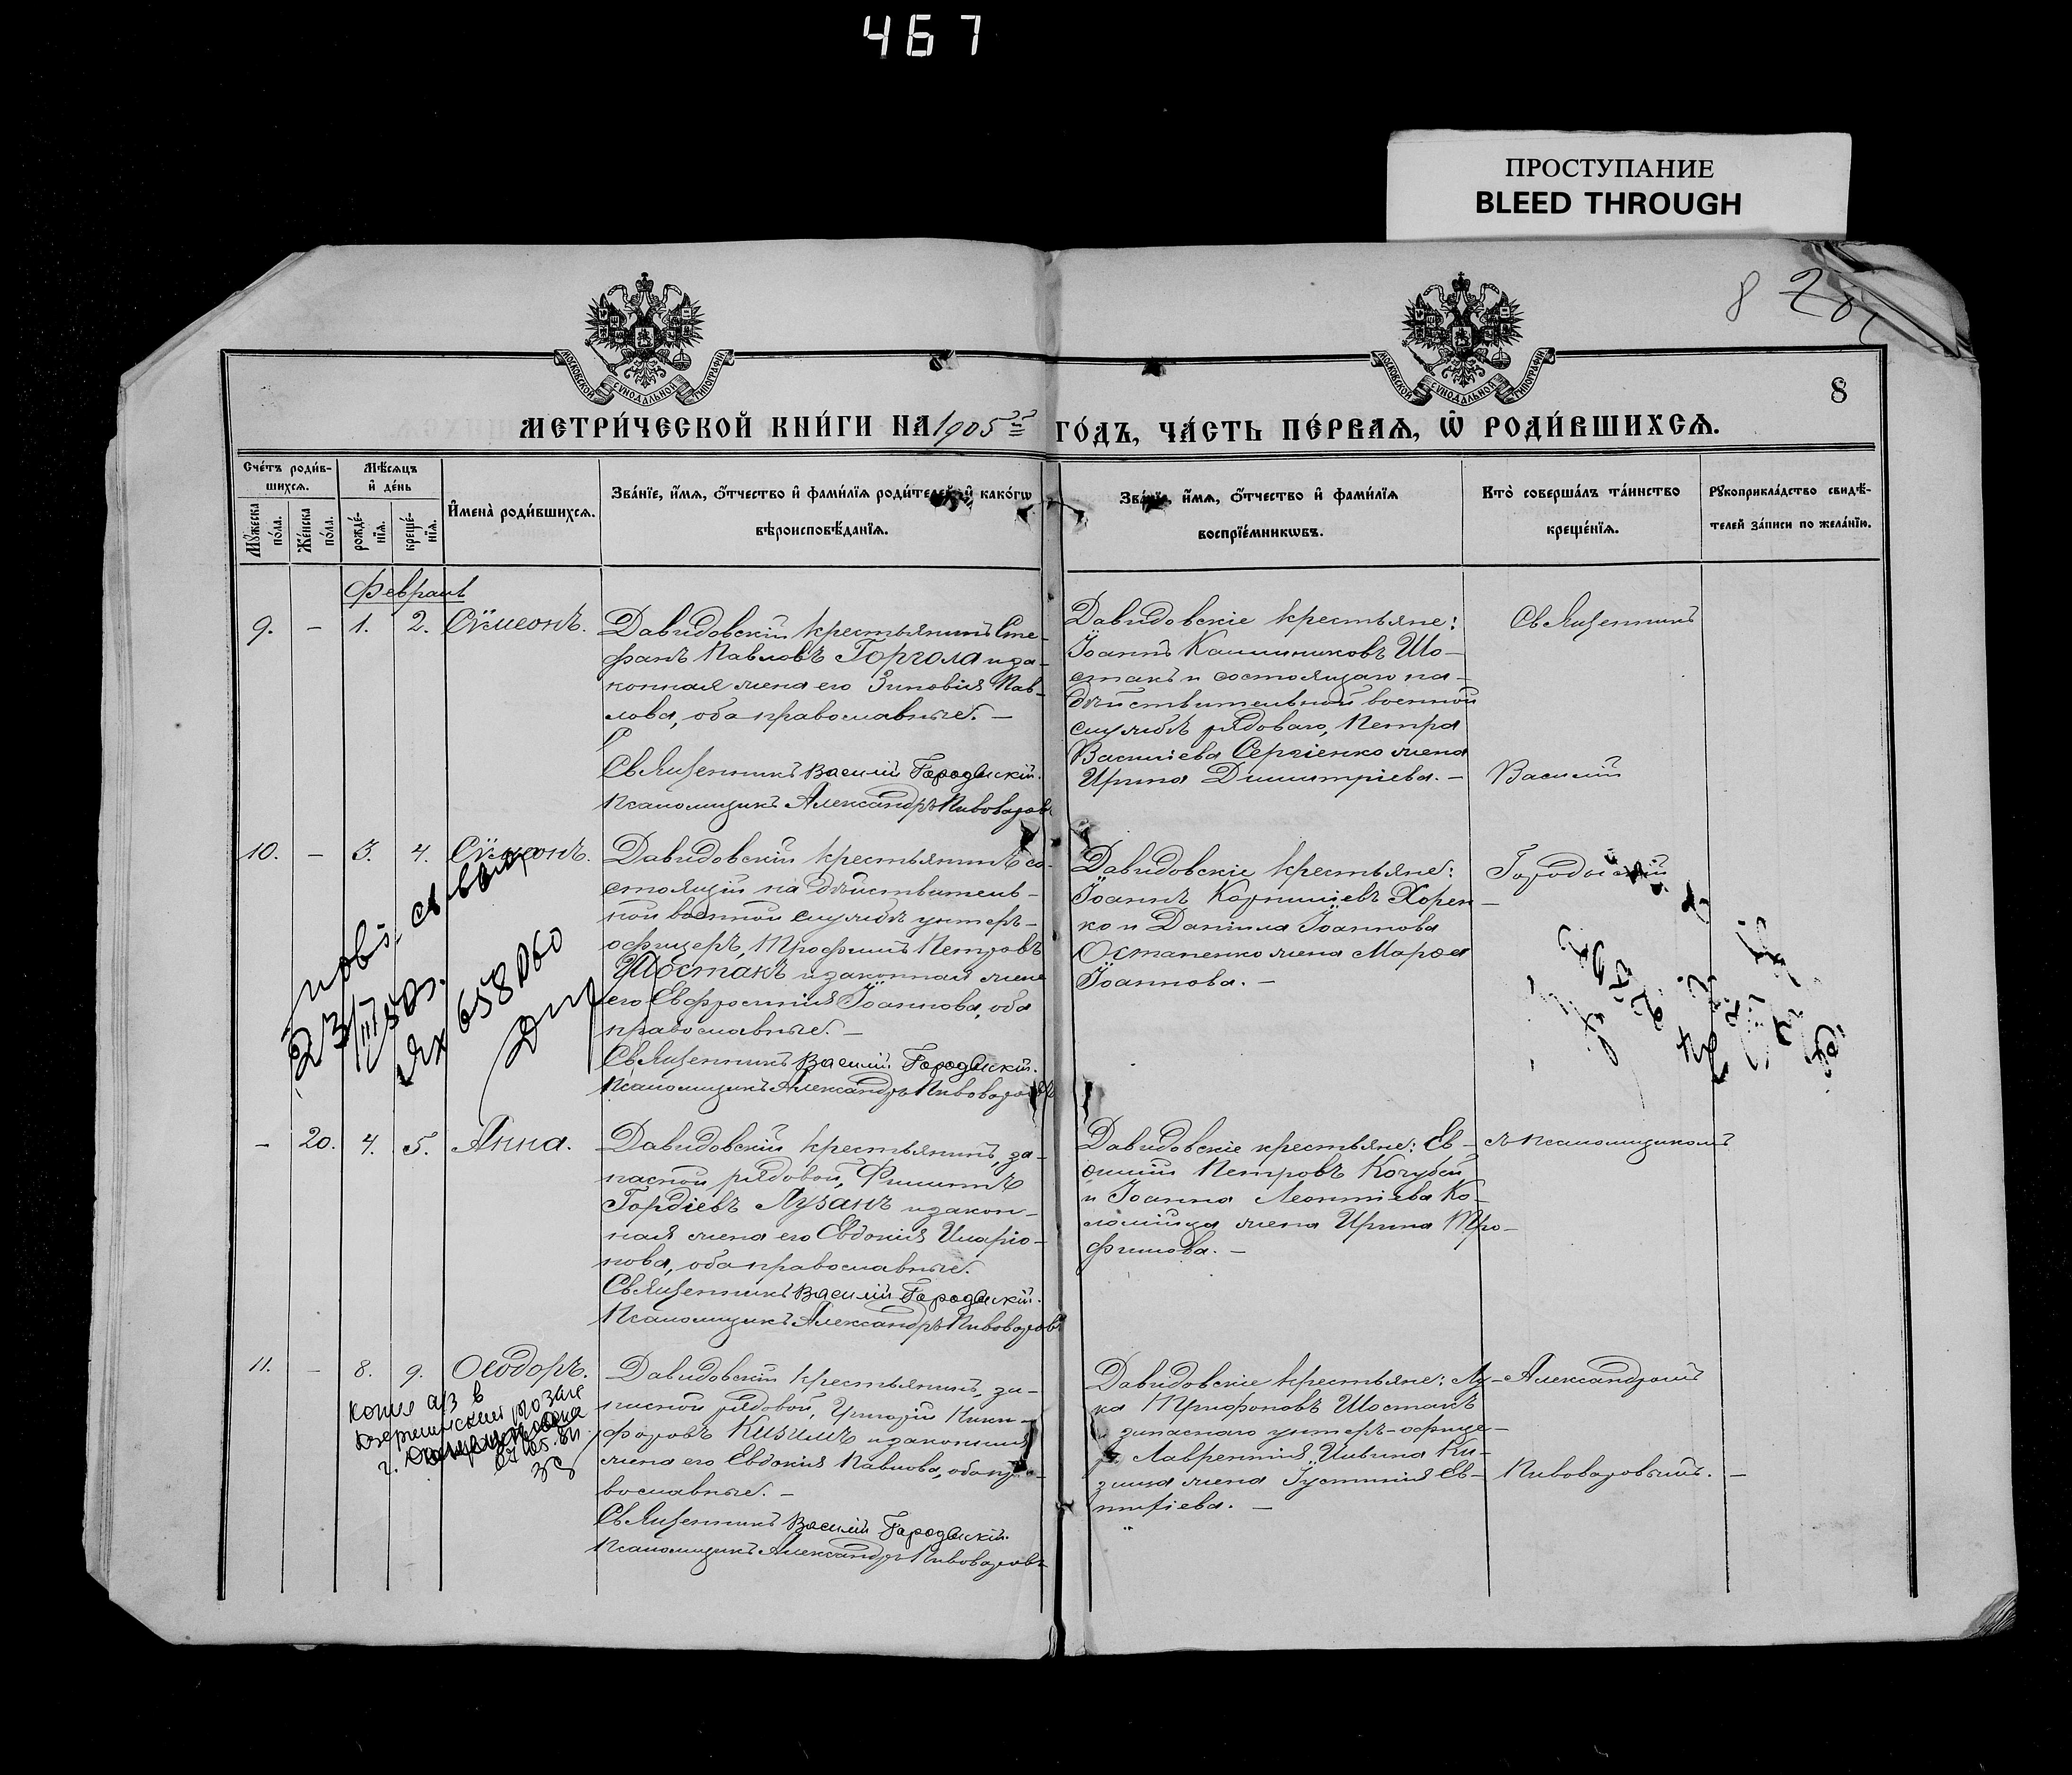 467
ПРОСТУПАНИЕ
BLEED THROUGH
8
8
МЕТРИ́ЧЕСКОЙ КНИ́ГИ НА 1905й ГО́ДЪ, ЧА́СТЬ ПЕ́РВАѦ, Ѡ҆ РОДИ́ВШИХСѦ.
Сче́тъ роди́вшихсѧ.
Мꙋ́жеска по́ла.
Же́нска по́ла.
Мѣ́сѧцъ и҆ де́нь
рожде́нїѧ.
креще́нїѧ.
И҆мена̀ роди́вшихсѧ.
Зва́нїе, и҆́мѧ, ѻ҆́тчество и҆ фами́лїѧ роди́телей, и҆ како́гѡ
вѣроисповѣ́данїѧ.
Зва́нїе, и҆́мѧ, ѻ҆́тчество и҆ фами́лїѧ
воспрїе́мникѡвъ.
Кто̀ соверша́лъ та́инство
креще́нїѧ.
Рꙋкоприкла́дство свидѣ́-
телей за́писи по жела́нїю.
Февраль
9. – 1. 2. Сѵмеонъ.
Давидовскій крестьянинъ Сте-
фанъ Павловъ Горгола и за-
конная жена его Зиновія Пав-
лова, оба православные. –
Священникъ Василій Городыскій.
Псаломщикъ Александръ Пивоваровъ
Давидовскіе крестьяне:
Іоаннъ Каллиниковъ Шо-
стакъ и состоящаго на
дѣйствительной военной
службѣ рядоваго, Петра
Василіева Сергіенко жена
Ирина Димитріева. –
Священникъ
Василій
10. – 3. 4. Сѵмеонъ.
Давидовскій крестьянинъ со-
стоящій на дѣйствитель-
ной военной службѣ унтеръ-
офицеръ, Трофимъ Петровъ
Шостакъ и законная жена
его Евфросинія Іоаннова, оба
православные. –
Священникъ Василій Городыскій.
Псаломщикъ Александръ Пивоваровъ
Давидовскіе крестьяне:
Іоаннъ Корниліевъ Хорен-
ко и Даніила Іоаннова
Остапенко жена Марѳа
Іоаннова. –
Городыскій
23/III 50г.
ЯХ 658060
– 20. 4. 5. Анна.
Давидовскій крестьянинъ, за-
пасной рядовой, Филиппъ
Гордіевъ Лузанъ и закон-
ная жена его Евдокія Иларіо-
нова, оба православные.
Священникъ Василій Городыскій.
Псаломщикъ Александръ Пивоваровъ
Давидовскіе крестьяне: Ев-
ѳимій Петровъ Кочубей
и Іоанна Леонтіева Ко-
ломійца жена Ирина Тро-
фимова. –
съ псаломщикомъ
11. – 8. 9. Ѳеодоръ.
Давидовскій крестьянинъ, за-
пасной рядовой, Григорій Ники-
форовъ Кизимъ и законная
жена его Евдокія Павлова, оба пра-
вославные. –
Священникъ Василій Городыскій.
Псаломщикъ Александръ Пивоваровъ
Давидовскіе крестьяне: Лу-
ка Трифоновъ Шостакъ
и запаснаго унтеръ-офице-
ра Лаврентія
жена Іустинія Ев-
тихіева. –
Александромъ
Пивоваровымъ. –
копия а/з в